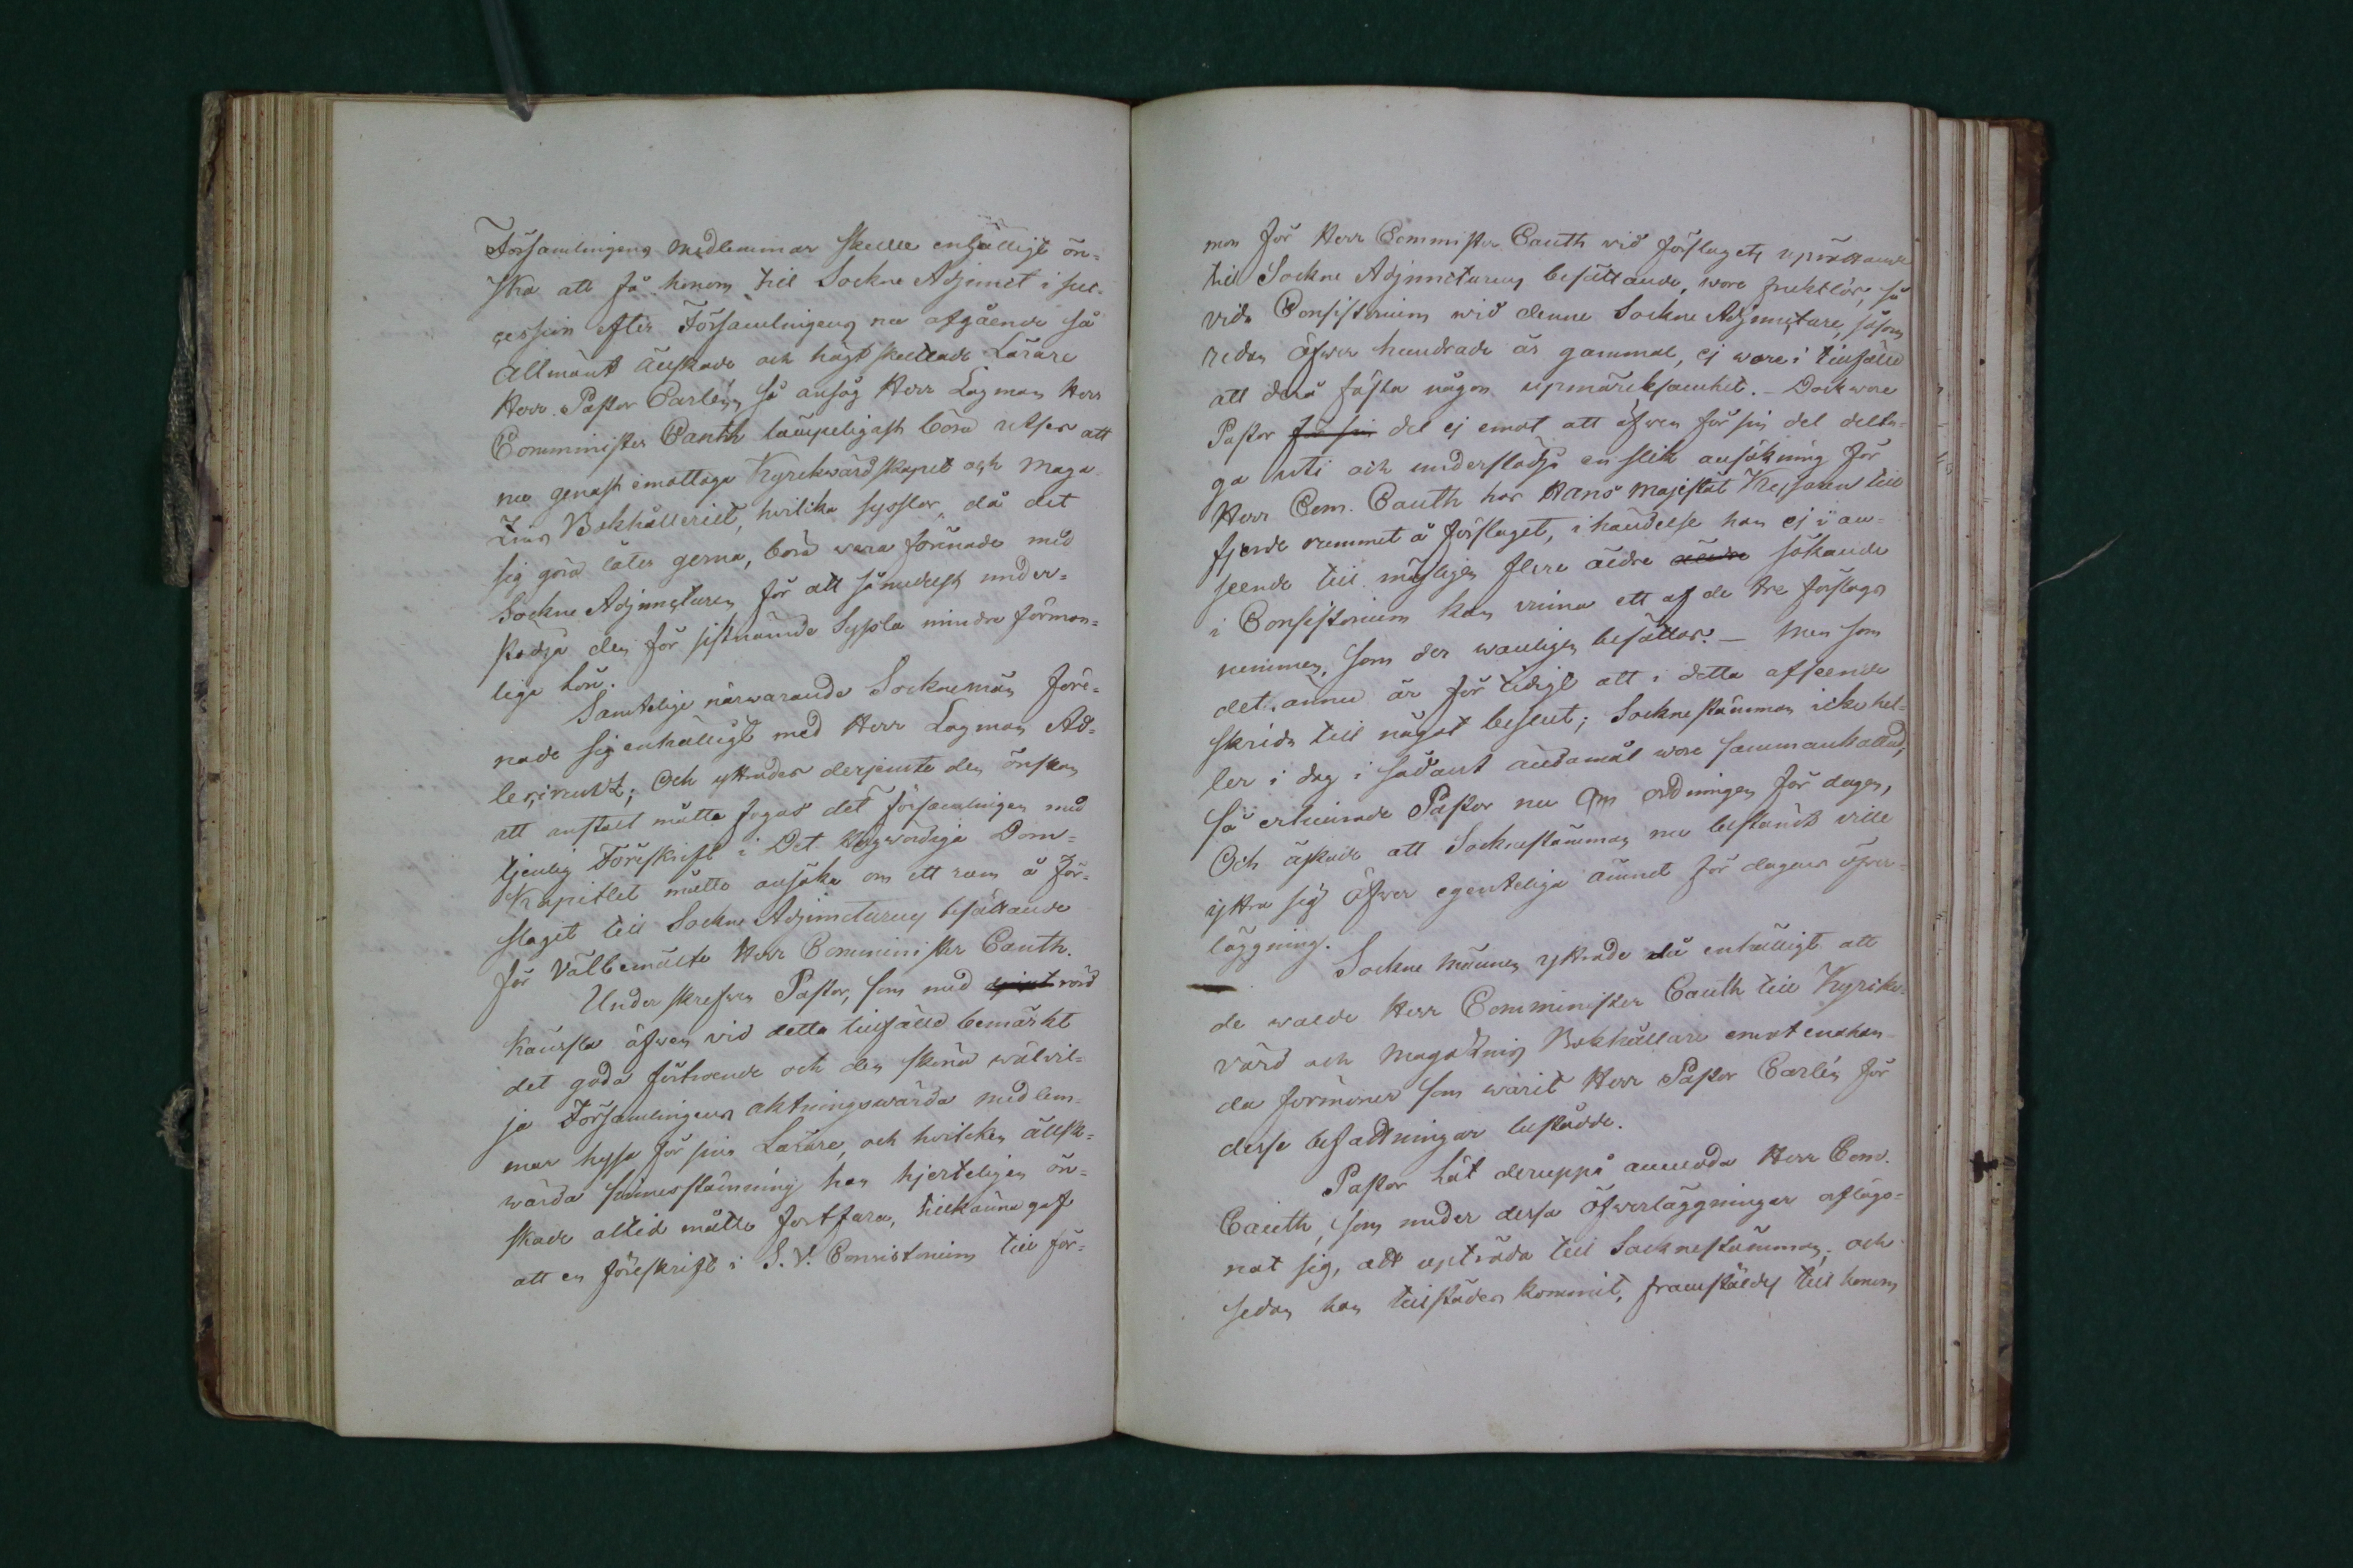 Församlingens medlemmar skulle enhälligt ön-
ska att få honom till Sockne Adjunct i suc-
cession efter Församlingens nu afgående så
Allmänt älskade och högt skattade Lärare
Herr Pastor Carlén, så ansåg Herr Lagman Herr
Comminister Cauth lämpeligast böra utses att
nu genast emottaga Kyrkwärdskapet och Maga-
zins Bokhålleriet, hvilka sysslor, då det
sig göra låter gerna, böra wara förenade med
Sockne Adjuncturen för att såmedelst under-
stödja den för sistnämnde Syssla mindre förmon-
liga lön.
Samtelige närwarande Sockneman före-
nade sig enhälligt med Herr Lagman Ad-
lercreutz; Och yttrades derjemte den önskan
att anstalt måtte fogas det församlingen med
tjenlig Föreskrift i Det Högwördiga Dom-
Kapitlet måtte ansöka om ett rum å För-
slaget till Sockne Adjuncturens besättande
för Välbemälte Herr Comminister Cauth.
Underskrefven Pastor, som med rörd
känsla äfwen vid detta tillfälle bemärkt
det goda förtroende och den sköna wälvil-
ja Församlingens aktningswärda medlem-
mar hysa för sina Lärare, och hvilken älsk-
wärda sinnesstämning han hjerteligen ön-
skade alltid måtte fortfara, tillkännagaf
att en föreskrift i S. V. Consistorium till för-
mon för Herr Comminister Cauth vid förslagets upprättande
till Sockne Adjuncturens besättande, wore fruktlös, så
vida Consistorium wid denne Sockne Adjuncture, såsom
redan öfwer hundrade år gammal, ej wore i tillfälle
att derå fästa någon upmärksamhet. - Dock wore
Pastor för sin del ej emot att äfwen för sin del delta-
ga uti och understödja en slik ansökning för
Herr Com. Cauth hos Hans Majestät Kejsaren till
fjerde rummet å förslaget, i händelse han ej i an-
seende till möjligen flere äldre äldre sökande
i Consistorium kan vinna ett af de tre förslags
rummen, som der wanligen besättas. - Men som
det annu är för tidigt att i detta afseende
skrida till något beslut; Socknestämman icke hel-
ler i dag i sådant ändamål wore sammankallad,
så erhinrade Pastor nu Om ordningen för dagen,
Och äskade att Socknestämman nu bestämdt ville
yttra sig öfwer egenteliga ämnet för dagens öfwer-
läggning.
Sockne männen yttrade då enhälligt att
de walde Herr Comminister Cauth till Kyrko-
värd och Magazins Bokhållare emot enahan-
da förmåner som warit Herr Pastor Carlén för
desse befattningar bestådde.
Pastor lät deruppå anmoda Herr Com.
Cauth, som under dessa öfwerläggningar aflägs-
nat sig, att upträda till Socknestämman, och
sedan han tillstädes kommit, framstäldes till honom